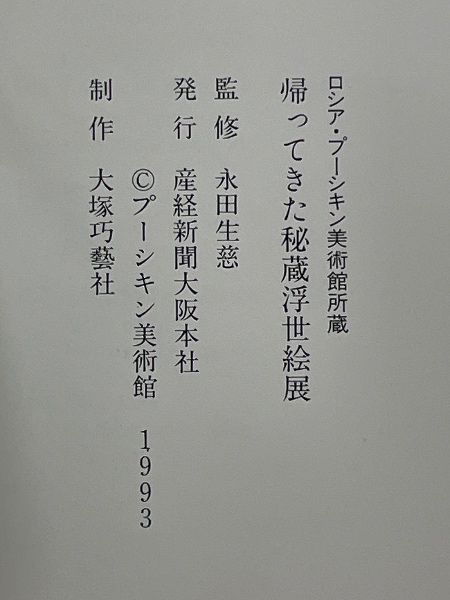 ロシア・プーシキン美術館所蔵
帰ってきた秘蔵浮世絵展
監修 永田生慈
発行 産経新聞大阪本社
©プーシキン美術館 1993
制作 大塚巧藝社